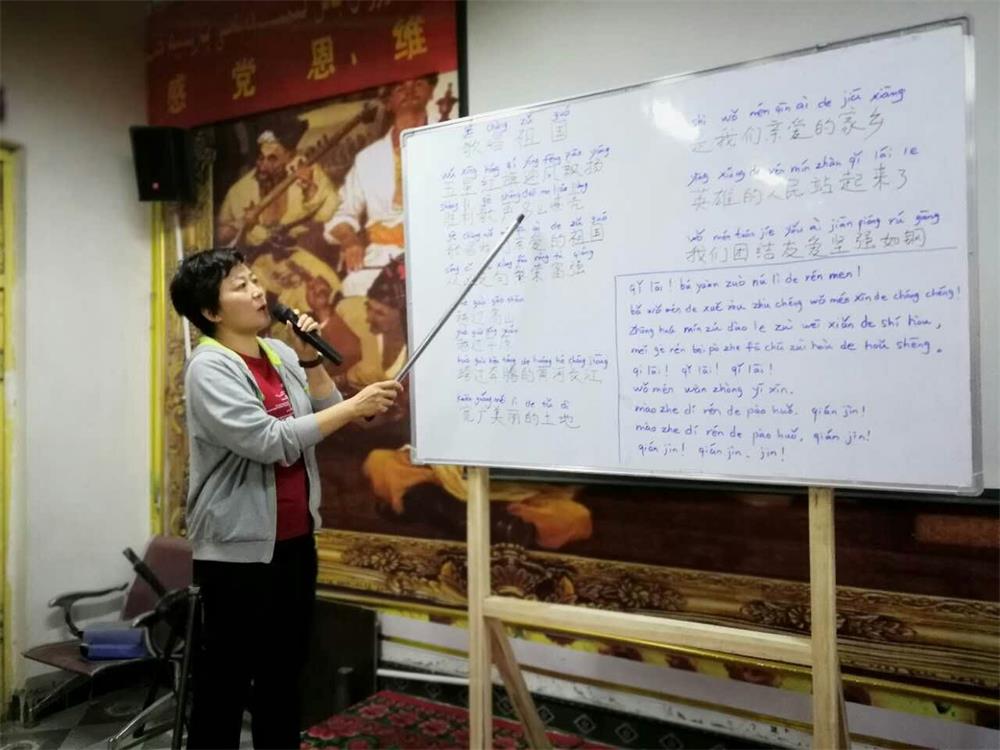 感 党 恩、维
gē chàng zǔ guó
歌唱祖国
wǔ xīng hóng qí yíng fēng piāo yáng
五星红旗迎风飘扬
胜利歌声多么嘹亮
de zǔ guó
亲爱的祖国
繁荣富强
yuè guò gāo shān
越过高山
越过平原
kuà guò bēn téng de huáng hé cháng jiāng
跨过奔腾的黄河长江
kuān guǎng měi lì de tǔ dì
宽广美丽的土地
shì wǒ mén qīn ài de jiā xiāng
是我们亲爱的家乡
yīng xióng de rén mín zhàn qǐ lái le
英雄的人民站起来了
wǒ mén tuán jié yǒu ài jiān qiáng rú gāng
我们团结友爱坚强如钢
qǐ lāi! bú yuàn zuò nú lì de rén men!
bǎ wǒ mén de xuě ròu zhù chéng wǒ mén xīn de cháng chéng!
zhōng huá mín zú dào le zuì wēi xiǎn de shí hòu,
měi gè rén bèi pò zhe fā chū zuì hòu de hǒu shēng.
qǐ lāi! qǐ lāi! qǐ lāi!
wǒ mén wàn zhòng yī xīn.
mào zhe dí rén de pào huǒ. qián jìn!
mào zhe dí rén de pào huǒ, qián jìn!
qián jìn! qián jìn. jìn!